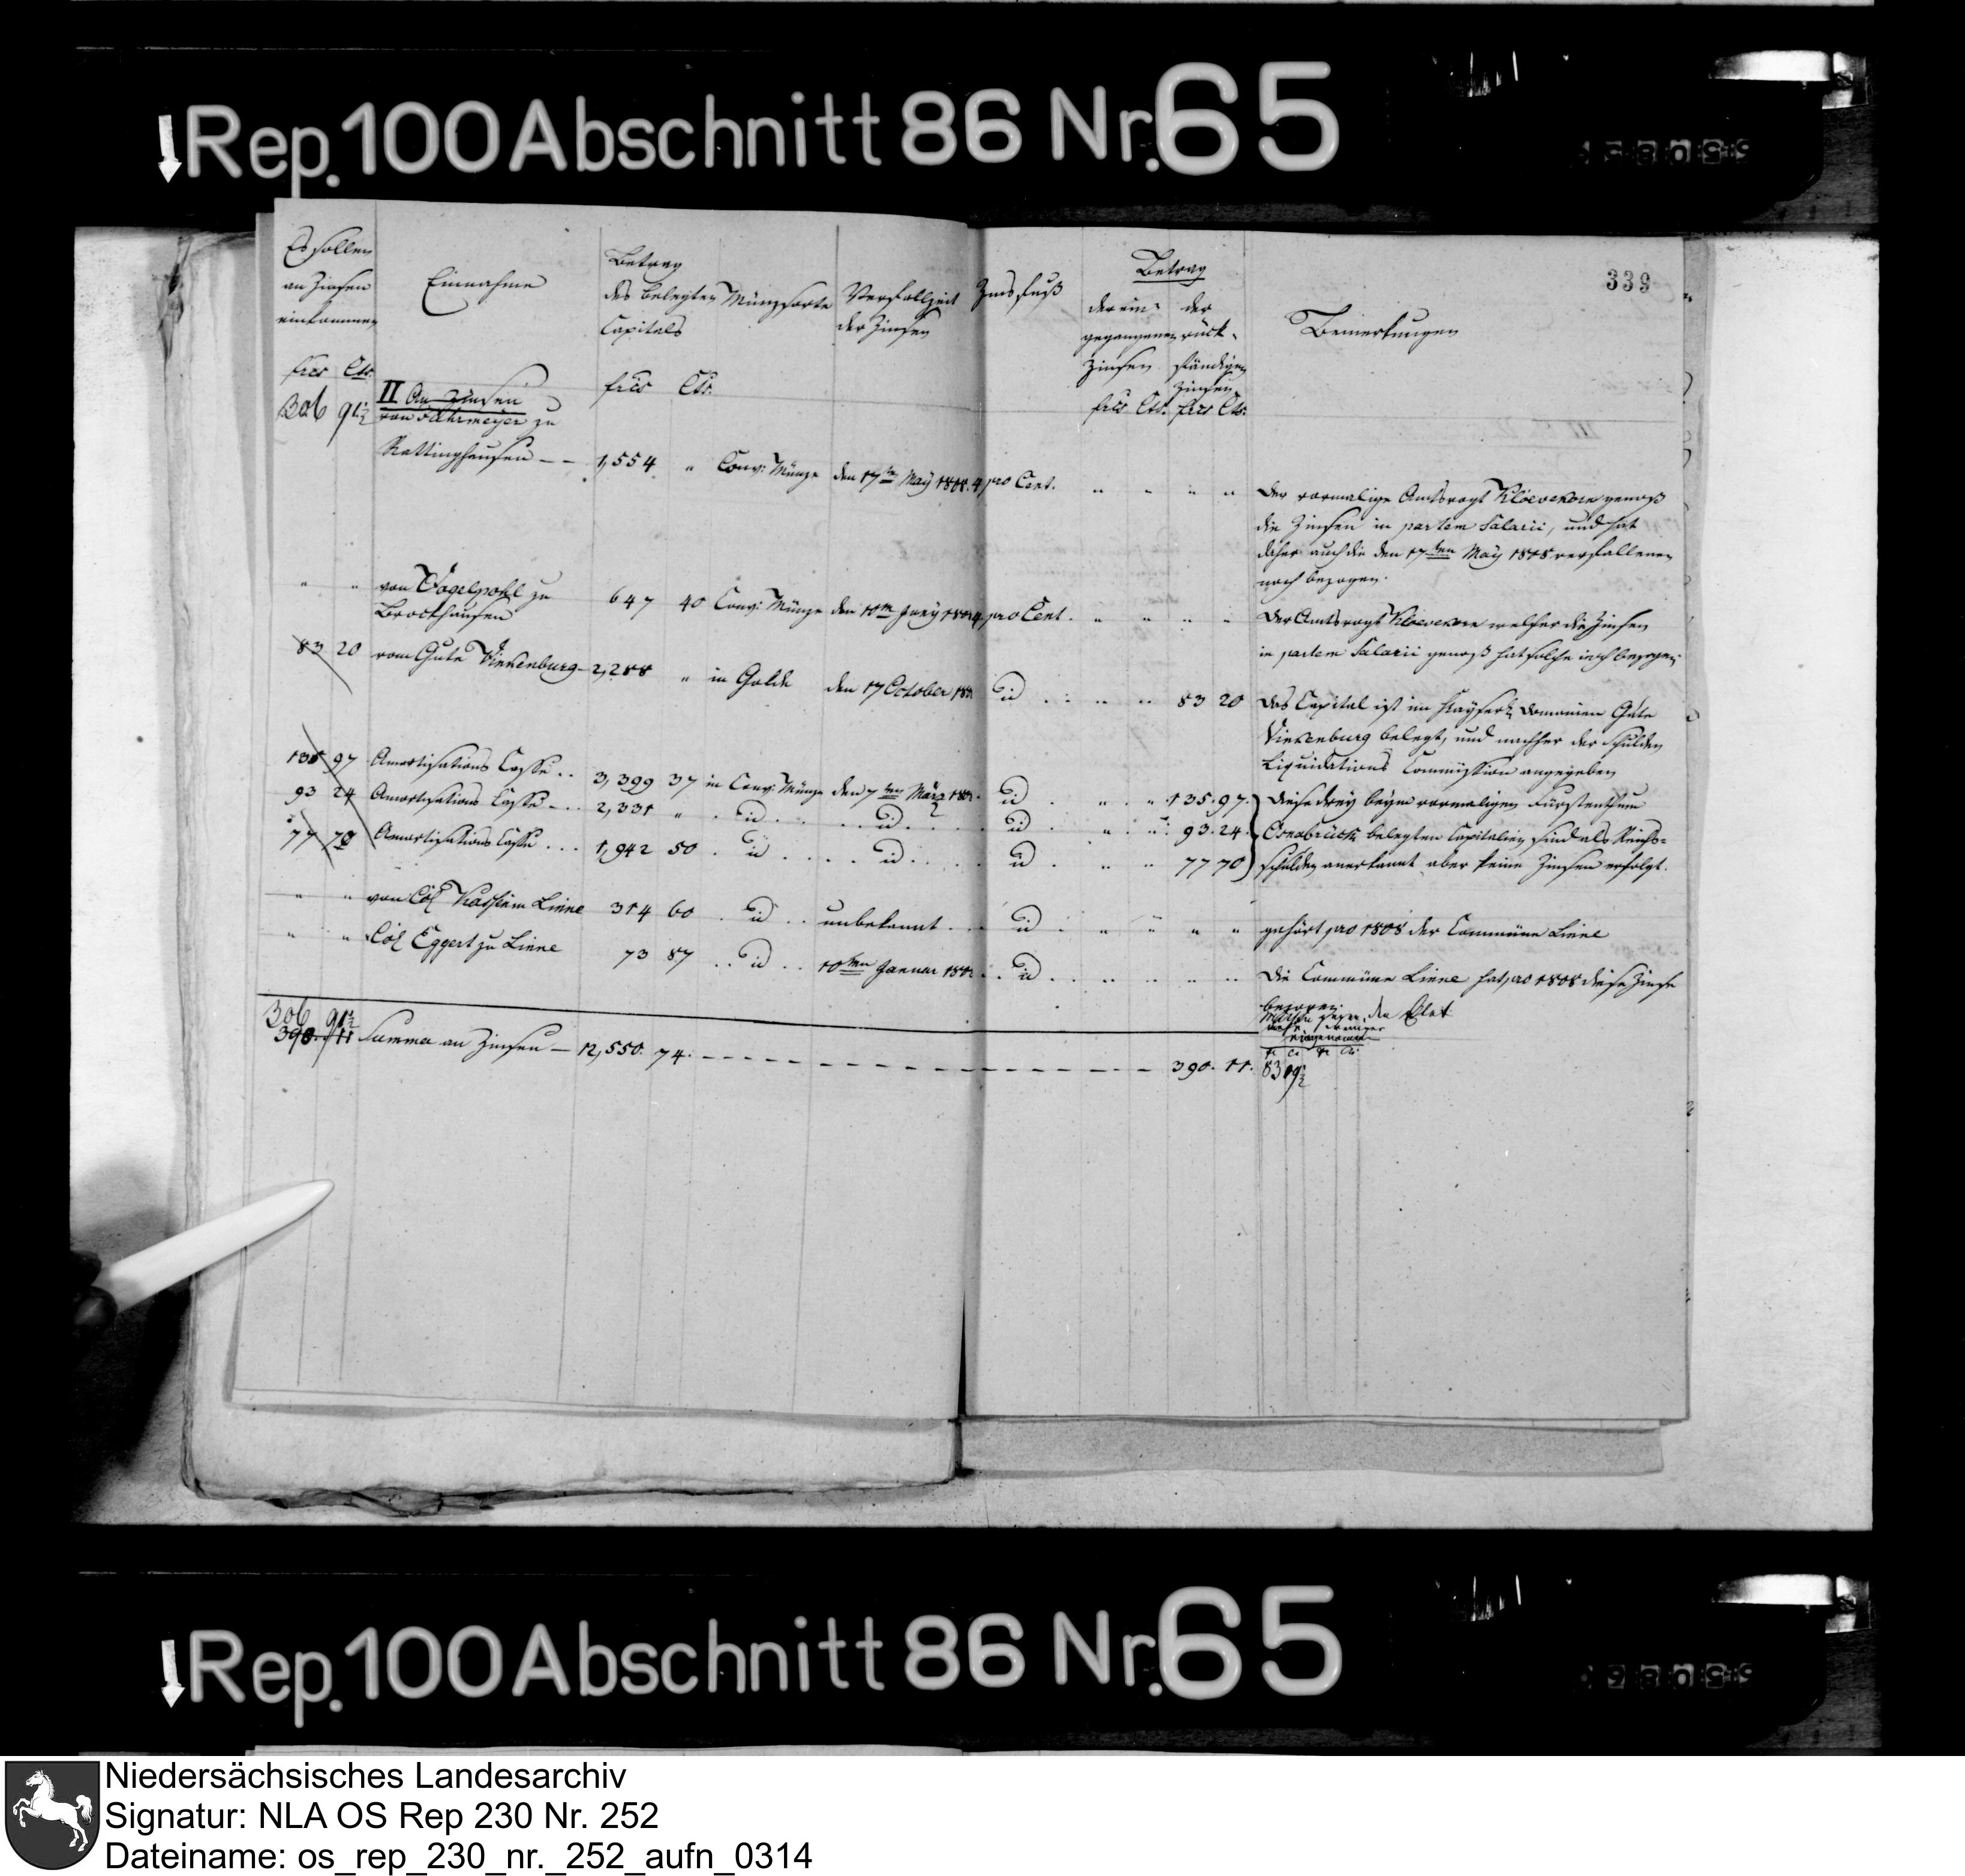 Rep. 100 Abschnitt 86 Nr. 65
339
Es sollen
an Zinsen
einkommen
frcs Cts.
Einnahme
Betrag
des belegten
Capitals
frcs Cts.
Münzsorte
Verfallzeit
der Zinsen
Zinsfuß
Betrag
der ein-
gegangenen
Zinsen
frcs Cts.
der
rück-
ständigen
Zinsen
frcs Cts.
Bemerkungen
306 91½ II An Zinsen
von zu
Rattinghausen -- 1,554 " Conv: Münze den 17ten May 1808. 4 pro Cent. " " " " Der vormalige Amtsvogt Kloevekorn genoß
die Zinsen in partem Salarii, und hat
daher auch die den 17ten May 1808 verfallenen
noch bezogen.
" " von Vogelpohl zu
Brockhausen 647 40 Conv: Münze den 10ten 4 pro Cent. " " " " Der Amtsvogt Kloevekorn welcher die Zinsen
in partem Salarii genoß hat solche noch bezogen
83 20 vom Gute Vienenburg - 2,288 " in Golde den 17 October id . . " " 83 20 Das Capital ist im Kayserl. Domainen Gute
Vienenburg belegt, und nachher der Schulden
Liquidations Commission angegeben
135 97 Amortisations Casse .. 3,399 37 in Conv: Münze den 7ten März id . " " 135. 97.
93 24 Amortisations Casse ... 2,331 " . id . . . id . . . id . " " 93. 24.
77 70 Amortisations Casse ... 1,942 50 . id . . . . id . . . id . " " 77 70
Diese drey beym vormaligen Fürstenthum
Osnabrück belegten Capitalien sind als Reichs-
schulden anerkannt aber keine Zinsen erfolgt.
" " von Col. Linne 314 60 . id . . unbekannt . . id . " " " " gehört pro 1808 der Commüne Linne
" " Col. Eggert zu Linne 73 87 . . id . . 10ten Januar . . id . . " " " " Die Commüne Linne hat pro 1808 diese Zinse
bezogen.
gegen den Etat
mehr weniger
eingenommen
fr Cs fr Cs
306 91½
390. 11 Summa an Zinsen — 12,550. 74. - - - 390. 11. 83 19½
Rep. 100 Abschnitt 86 Nr. 65
Niedersächsisches Landesarchiv
Signatur: NLA OS Rep 230 Nr. 252
Dateiname: os_rep_230_nr._252_aufn_0314